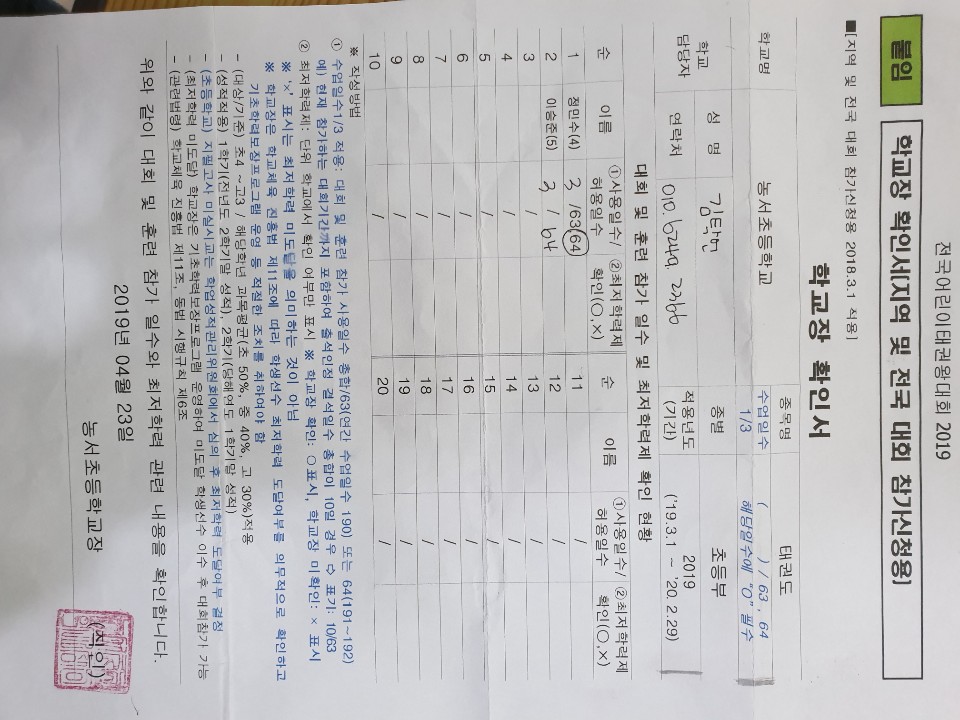 전국어린이태권왕대회 2019
붙임
학교장 확인서[지역 및 전국 대회 참가신청용]
■[지역 및 전국 대회 참가신청용 2018.3.1 적용]
학교장 확인서
학교명 농서초등학교 종목명 태권도
수업일수 1/3 ( ) / 63 , 64
해당일수에 "O" 필수
학교 담당자 성 명 종별 초등부
연락처 적용년도 (기간) 2019
('19.3.1 ~ '20.2.29)
대회 및 훈련 참가 일수 및 최저학력제 확인 현황
순 이름 ①사용일수/허용일수 ②최저학력제 확인(○,×) 순 이름 ①사용일수/허용일수 ②최저학력제 확인(○,×)
1 정민수(4) 3 /63 64 11 /
2 이승준(5) 3 / 64 12 /
3 / 13 /
4 / 14 /
5 / 15 /
6 / 16 /
7 / 17 /
8 / 18 /
9 / 19 /
10 / 20 /
※ 작성방법
① 수업일수1/3 적용: 대회 및 훈련 참가 사용일수 총합/63(연간 수업일수 190) 또는 64(191~192)
예) 현재 참가하는 대회기간까지 포함하여 출석인정 결석일수 총합이 10일 경우 ⇨ 표기: 10/63
② 최저학력제: 단위 학교에서 확인 여부만 표시 ※ 학교장 확인: ○표시, 학교장 미확인: × 표시
※ '×' 표시는 최저학력 미도달을 의미하는 것이 아님
※ 학교장은 학교체육 진흥법 제11조에 따라 학생선수 최저학력 도달여부를 의무적으로 확인하고
기초학력보장프로그램 운영 등 적절한 조치를 취하여야 함
- (대상/기준) 초4 ~고3 / 해당학년 과목평균(초 50%, 중 40%, 고 30%)적용
- (성적적용) 1학기(전년도 2학기말 성적), 2학기(당해연도 1학기말 성적)
- (초등학교) 지필고사 미실시교는 학업성적관리위원회에서 심의 후 최저학력 도달여부 결정
- (최저학력 미도달) 학교장은 기초학력보장프로그램 운영하여 미도달 학생선수 이수 후 대회참가 가능
- (관련법령) 학교체육 진흥법 제11조, 동법 시행규칙 제6조
위와 같이 대회 및 훈련 참가 일수와 최저학력 관련 내용을 확인합니다.
2019년 04월 23일
농서초등학교장 (직인)